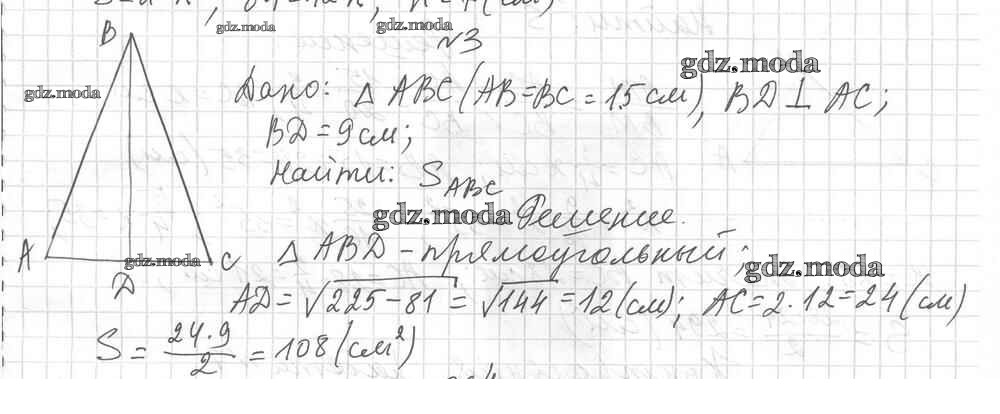 gdz.moda gdz.moda
№3
gdz.moda
B
gdz.moda
Дано: △ ABC (AB=BC = 15 см), BD ⊥ AC;
BD = 9 см;
Найти: S_ABC
gdz.moda Решение.
△ ABD – прямоугольный;
A
gdz.moda C
D
gdz.moda
AD = √225-81 = √144 = 12 (см); AC = 2 · 12 = 24 (см)
S = 24·9/2 = 108 (см²)